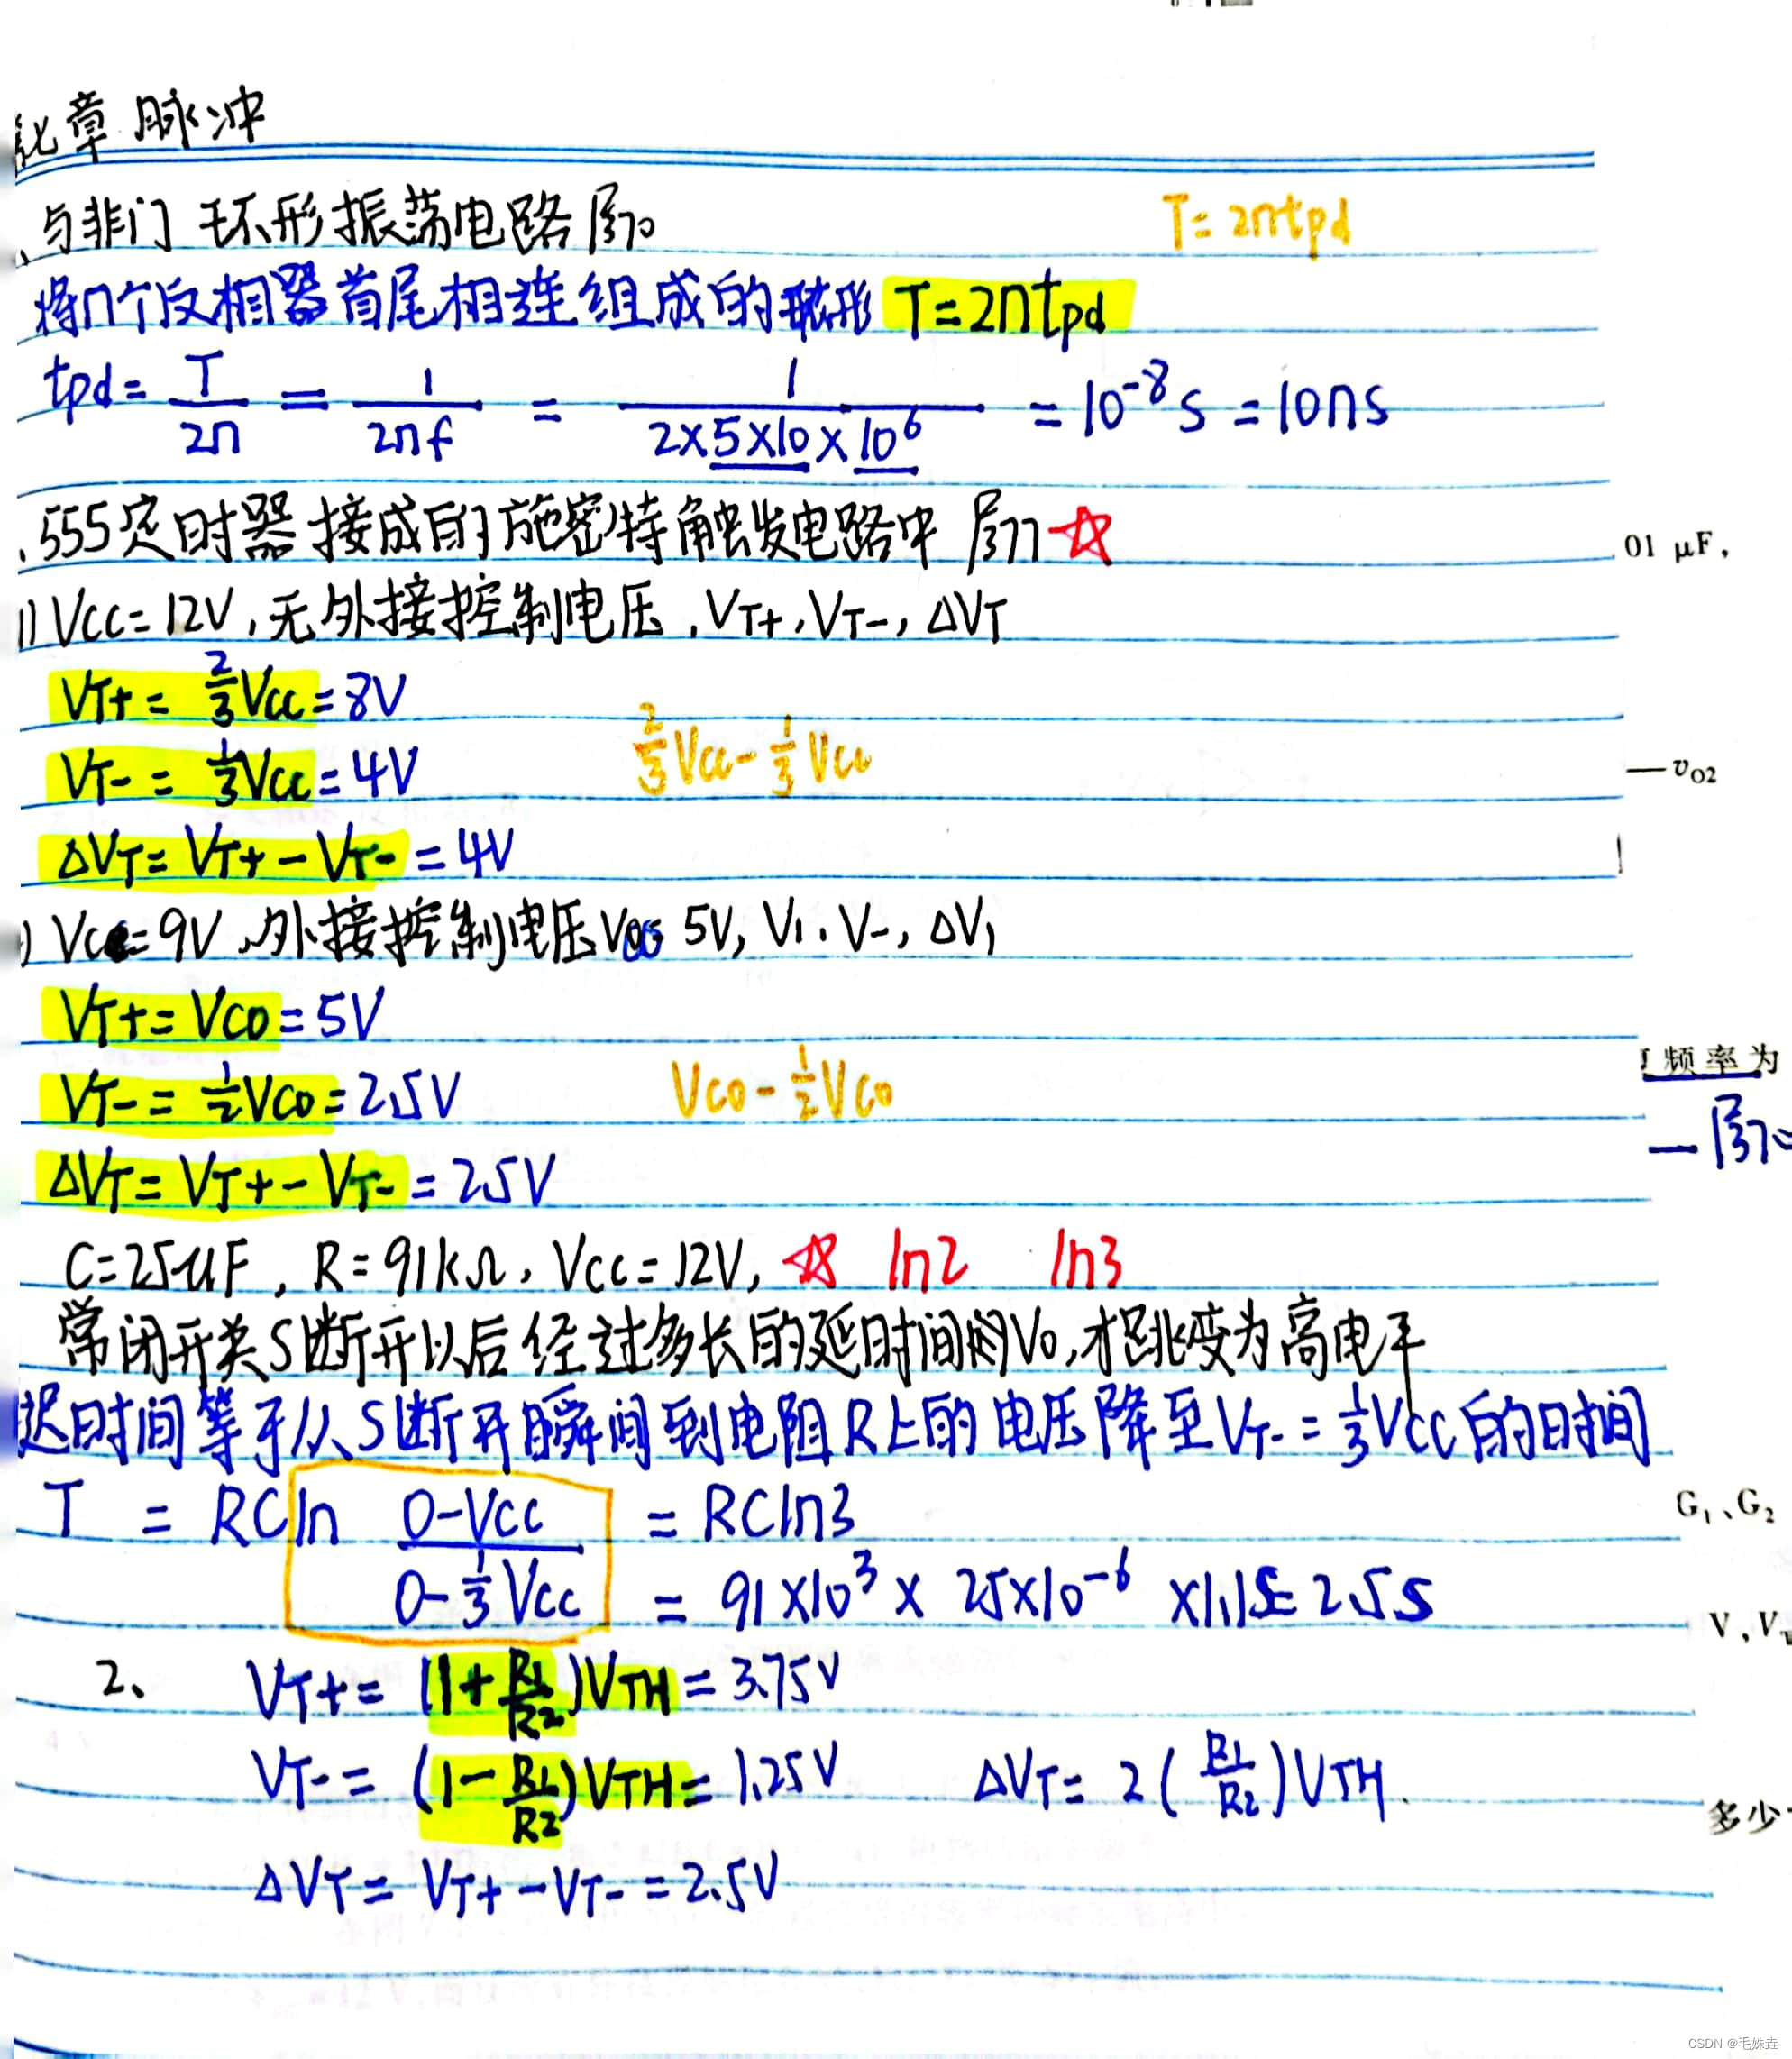 章 脉冲
与非门 环形振荡电路 P370
T=2ntpd
将n个反相器首尾相连组成的环形 T=2ntpd
tpd=T/2n = 1/2nf = 1/2×5×10×10⁶ =10⁻⁸s =10ns
.555定时器接成的施密特触发电路中 P377 ☆
01 μF,
1) VCC=12V,无外接控制电压,VT+,VT-,ΔVT
VT+= 2/3VCC=8V
VT-= 1/3VCC=4V
2/3VCC-1/3VCC
—vO2
ΔVT=VT+-VT-=4V
) VCC=9V,外接控制电压VCO=5V, V1. V-, ΔV1
VT+=VCO=5V
VT-=1/2VCO=2.5V
VCO-1/2VCO
频率为
ΔVT=VT+-VT-=2.5V
C=25μF, R=91kΩ, VCC=12V, ☆ ln2 ln3
常闭开关S断开以后经过多长的延时间的VO,才跳变为高电平
迟时间等于从S断开瞬间到电阻R上的电压降至VT-=1/3VCC的时间
T = RCln (0-VCC)/(0-1/3VCC) = RCln3
G₁、G₂
= 91×10³ × 25×10⁻⁶ ×1.1S=2.5s
V,V
2、 VT+= (1+R1/R2)VTH=3.75V
VT-= (1-R1/R2)VTH=1.25V ΔVT=2(R1/R2)VTH.
多少
ΔVT= VT+-VT-=2.5V
CSDN @毛姝垚